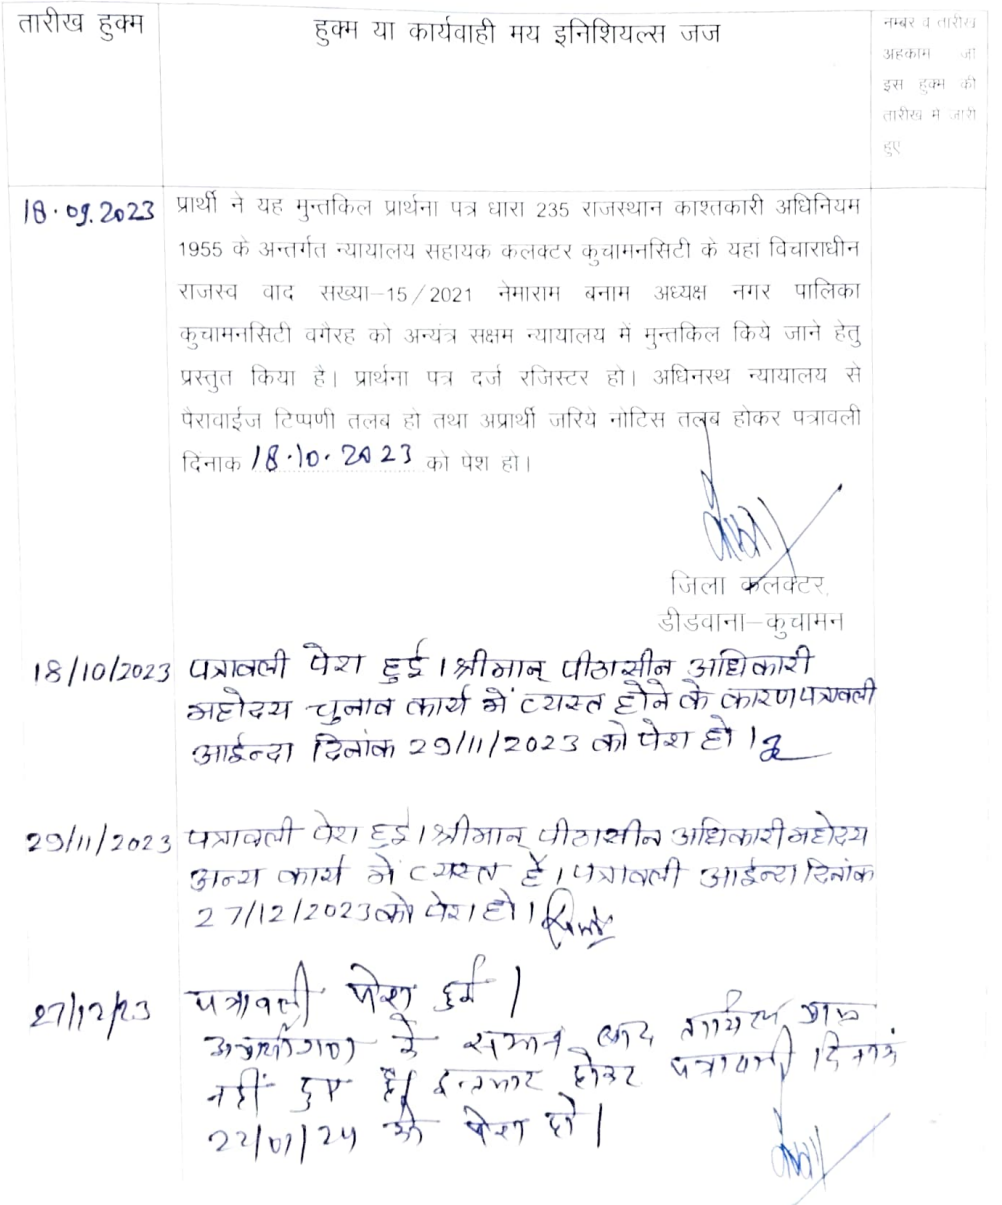 तारीख हुक्म
हुक्म या कार्यवाही मय इनिशियल्स जज
नम्बर व तारीख
अहकाम जो
इस हुक्म की
तारीख में जारी
हुए
18.09.2023
प्रार्थी ने यह मुन्तकिल प्रार्थना पत्र धारा 235 राजस्थान काश्तकारी अधिनियम
1955 के अन्तर्गत न्यायालय सहायक कलक्टर कुचामनसिटी के यहां विचाराधीन
राजस्व वाद सख्या–15/2021 नेमाराम बनाम अध्यक्ष नगर पालिका
कुचामनसिटी वगैरह को अन्यंत्र सक्षम न्यायालय में मुन्तकिल किये जाने हेतु
प्रस्तुत किया है। प्रार्थना पत्र दर्ज रजिस्टर हो। अधिनस्थ न्यायालय से
पैरावाईज टिप्पणी तलब हो तथा अप्रार्थी जरिये नोटिस तलब होकर पत्रावली
दिनाक 18.10.2023 को पेश हो।
जिला कलक्टर,
डीडवाना–कुचामन
18/10/2023 पत्रावली पेश हुई। श्रीमान् पीठासीन अधिकारी
महोदय चुनाव कार्य में व्यस्त होने के कारण पत्रावली
आईन्दा दिनांक 29/11/2023 को पेश हो।
29/11/2023 पत्रावली पेश हुई। श्रीमान् पीठासीन अधिकारी महोदय
अन्य कार्य में व्यस्त हैं। पत्रावली आईन्दा दिनांक
27/12/2023 को पेश हो।
27/12/23 पत्रावली पेश हुई।
के समन बाद तामिल प्राप्त
नहीं हुए है। इन्तजार होकर पत्रावली दिनांक
22/01/24 को पेश हो।